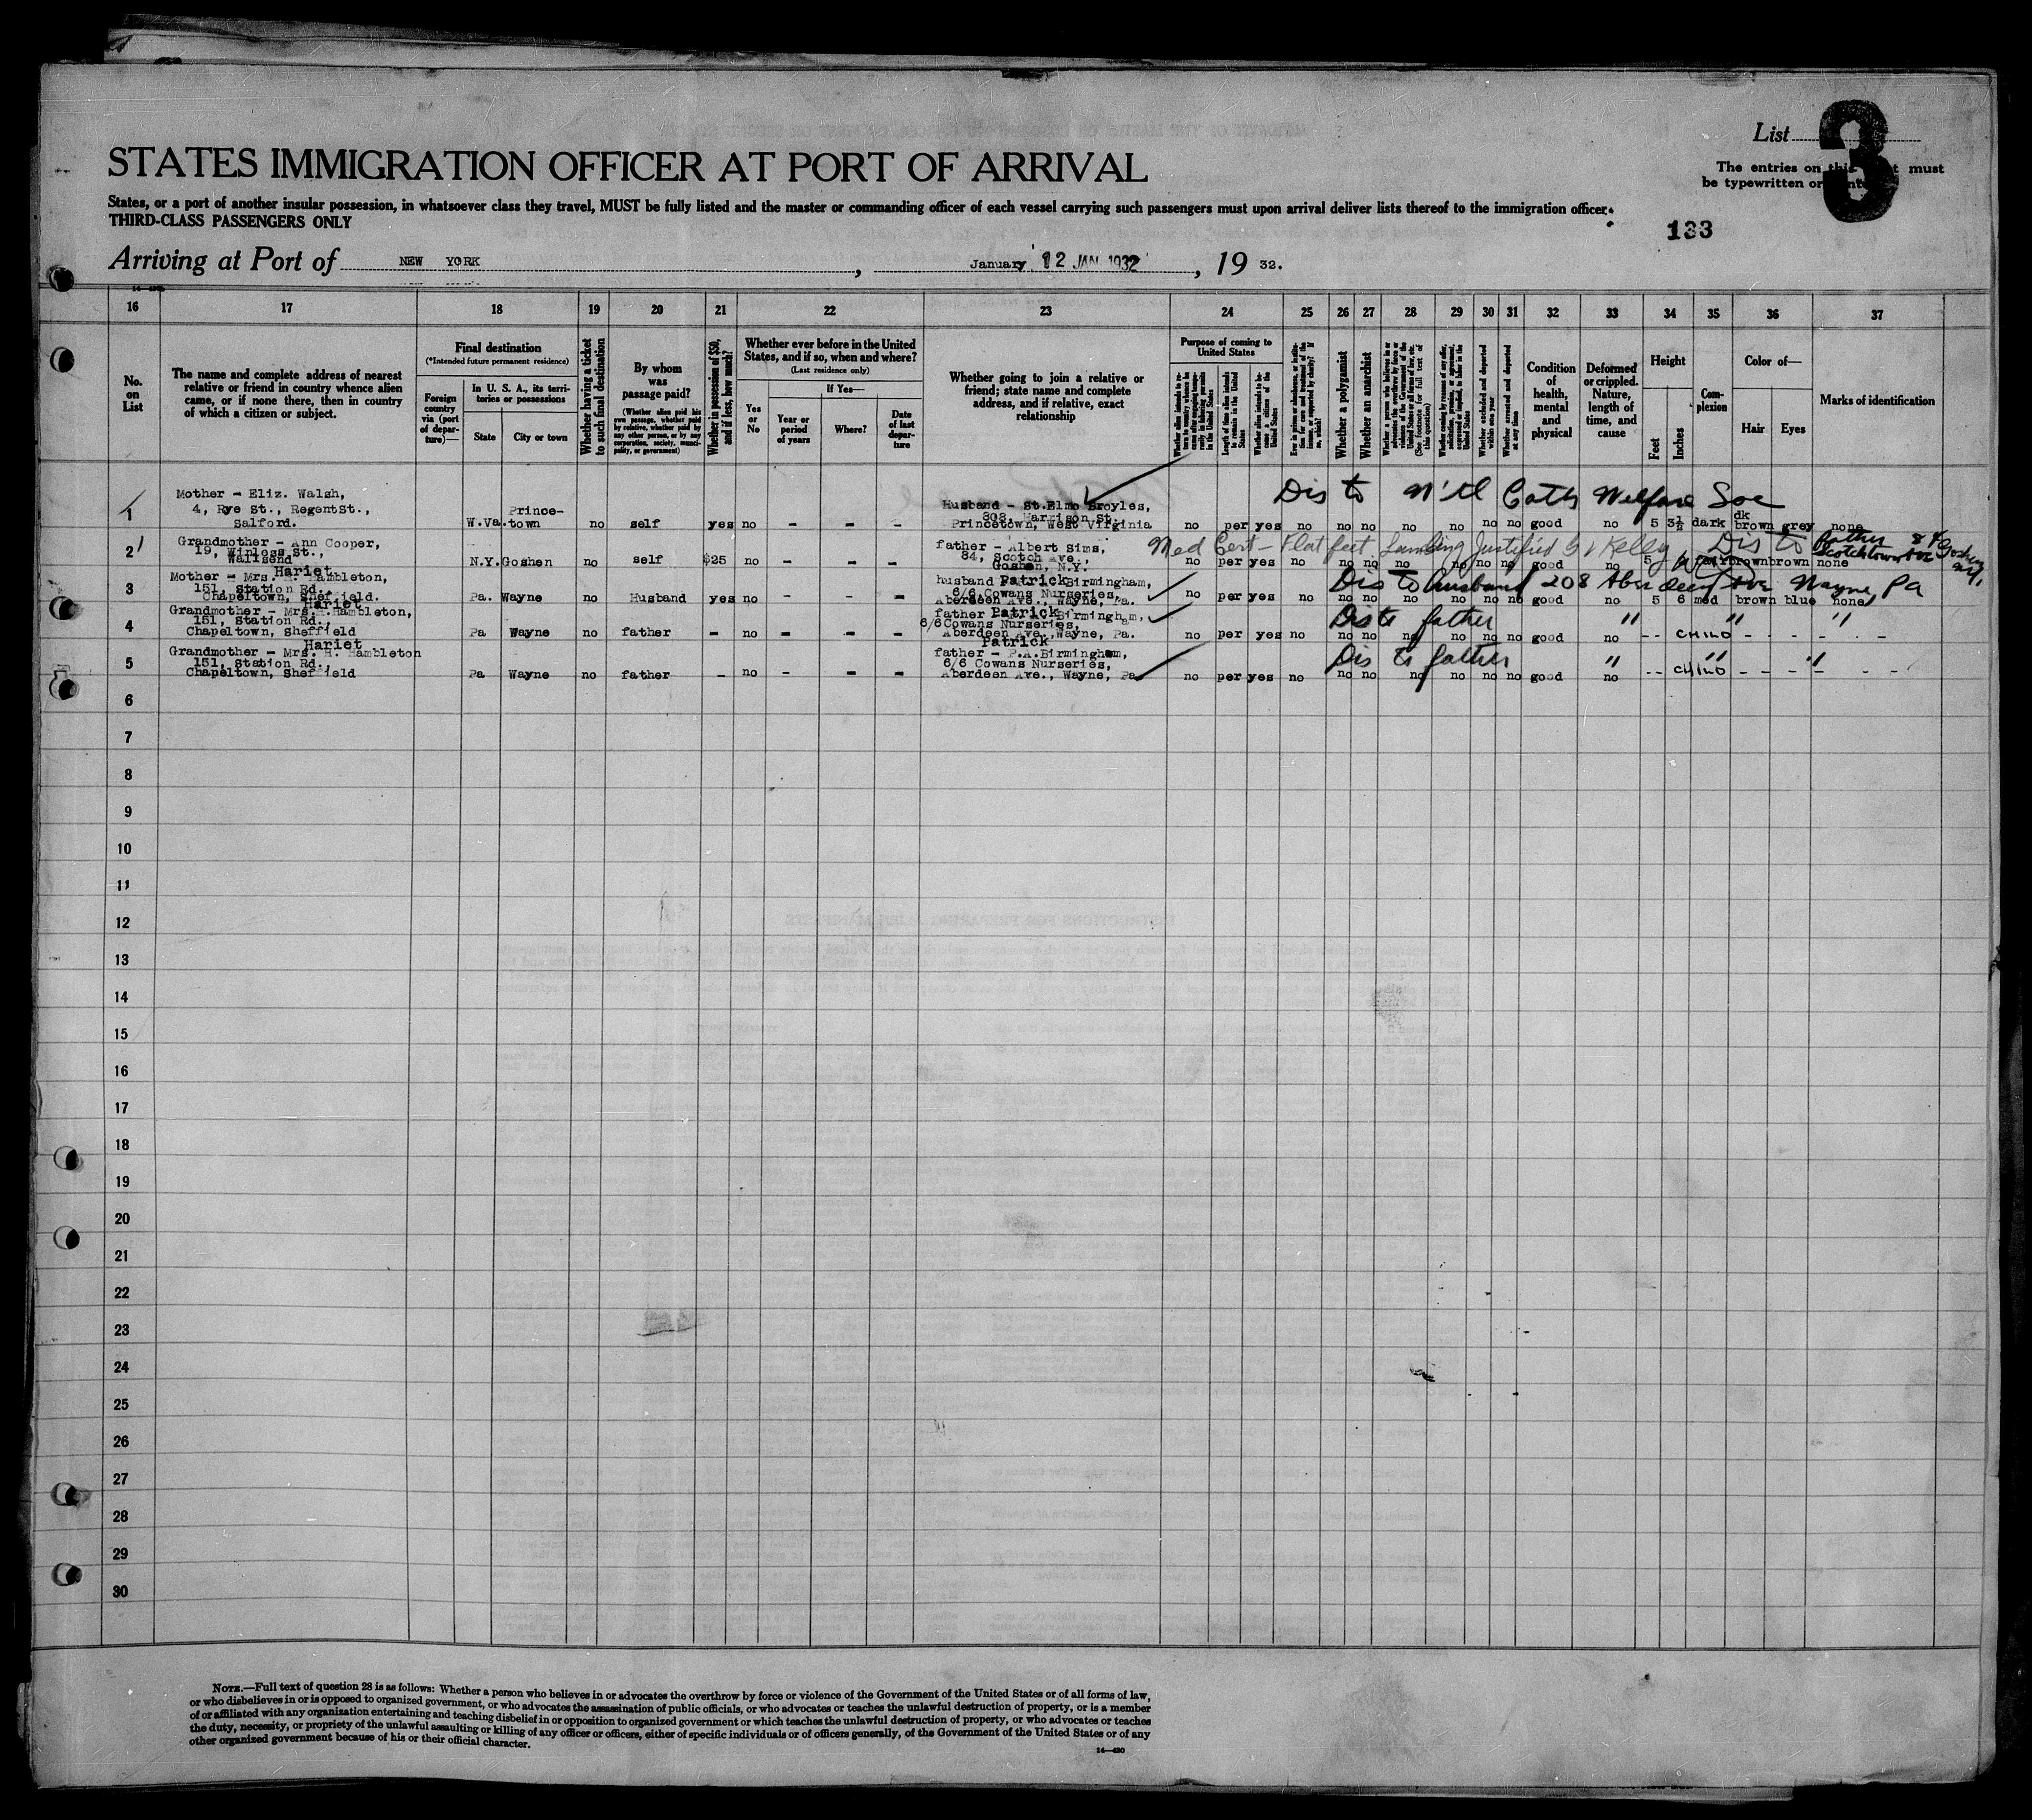 List 3
STATES IMMIGRATION OFFICER AT PORT OF ARRIVAL
The entries on this must
be typewritten or
States, or a port of another insular possession, in whatsoever class they travel, MUST be fully listed and the master or commanding officer of each vessel carrying such passengers must upon arrival deliver lists thereof to the immigration officer.
THIRD-CLASS PASSENGERS ONLY
133
Arriving at Port of NEW YORK, January 12 JAN 1932, 19 32.
16 17 18 19 20 21 22 23 24 25 26 27 28 29 30 31 32 33 34 35 36 37
No. on List
The name and complete address of nearest relative or friend in country whence alien came, or if none there, then in country of which a citizen or subject.
Final destination
(*Intended future permanent residence)
Foreign country via (port of departure)—
In U. S. A., its territories or possessions
State
City or town
Whether having a ticket to such final destination
By whom was passage paid?
(Whether alien paid his own passage, whether paid by relative, whether paid by any other person, or by any corporation, society, municipality, or government)
Whether in possession of $50, and if less, how much?
Whether ever before in the United States, and if so, when and where?
(Last residence only)
Yes or No
If Yes—
Year or period of years
Where?
Date of last departure
Whether going to join a relative or friend; state name and complete address, and if relative, exact relationship
Purpose of coming to United States
Length of time alien intends to remain in the United States
Whether a polygamist
Whether an anarchist
(See footnote for full text of this question)
Whether excluded and deported within one year
Whether arrested and deported at any time
Condition of health, mental and physical
Deformed or crippled. Nature, length of time, and cause
Height
Feet
Inches
Complexion
Color of—
Hair
Eyes
Marks of identification
Dis to Nt'l Cath Welfare Soc
1 Mother - Eliz. Walsh, 4, Rye St., Regent St., Salford. W.Va. Princetown no self yes no - - - Husband - St.Elmo Broyles, 308, Harrison St., Princetown, West Virginia no per yes no no no no no no no good no 5 3½ dark dk brown grey none
Med Cert - Flat feet, Landing Justified Kelly Dis to father 84 Scotchtown Ave Goshen N.Y.
2 Grandmother - Ann Cooper, 19, St., Wallsend N.Y. Goshen no self $25 no - - - father - Albert Sims, 84, Scotch Ave., Goshen, N.Y. no per yes no no no no no no no good no 5 fair brown brown none
Dis to husband 208 Aberdeen Ave Wayne, Pa
3 Mother - Mrs. Hariet Hambleton, 151, Station Rd., Chapeltown, Sheffield. Pa. Wayne no Husband yes no - - - husband Patrick Birmingham, 6/6 Cowans Nurseries, Aberdeen Ave., Wayne, Pa. no per yes no no no no no no good no 5 6 med brown blue none
Dis to father " " "
4 Grandmother - Mrs. Hariet Hambleton, 151, Station Rd., Chapeltown, Sheffield Pa Wayne no father - no - - - father Patrick Birmingham, 6/6 Cowans Nurseries, Aberdeen Ave., Wayne, Pa. no per yes no no no no no no no good no - - CHILD - - - - -
Dis to father " " "
5 Grandmother - Mrs. H. Hariet Hambleton 151, Station Rd., Chapeltown, Sheffield Pa Wayne no father - no - - - Patrick father - P.A.Birmingham, 6/6 Cowans Nurseries, Aberdeen Ave., Wayne, Pa no per yes no no no no no no no good no - - CHILD - - - - - -
6
7
8
9
10
11
12
13
14
15
16
17
18
19
20
21
22
23
24
25
26
27
28
29
30
NOTE.—Full text of question 28 is as follows: Whether a person who believes in or advocates the overthrow by force or violence of the Government of the United States or of all forms of law,
or who disbelieves in or is opposed to organized government, or who advocates the assassination of public officials, or who advocates or teaches the unlawful destruction of property, or is a member
of or affiliated with any organization entertaining and teaching disbelief in or opposition to organized government or which teaches the unlawful destruction of property, or who advocates or teaches
the duty, necessity, or propriety of the unlawful assaulting or killing of any officer or officers, either of specific individuals or of officers generally, of the Government of the United States or of any
other organized government because of his or their official character.
14—430